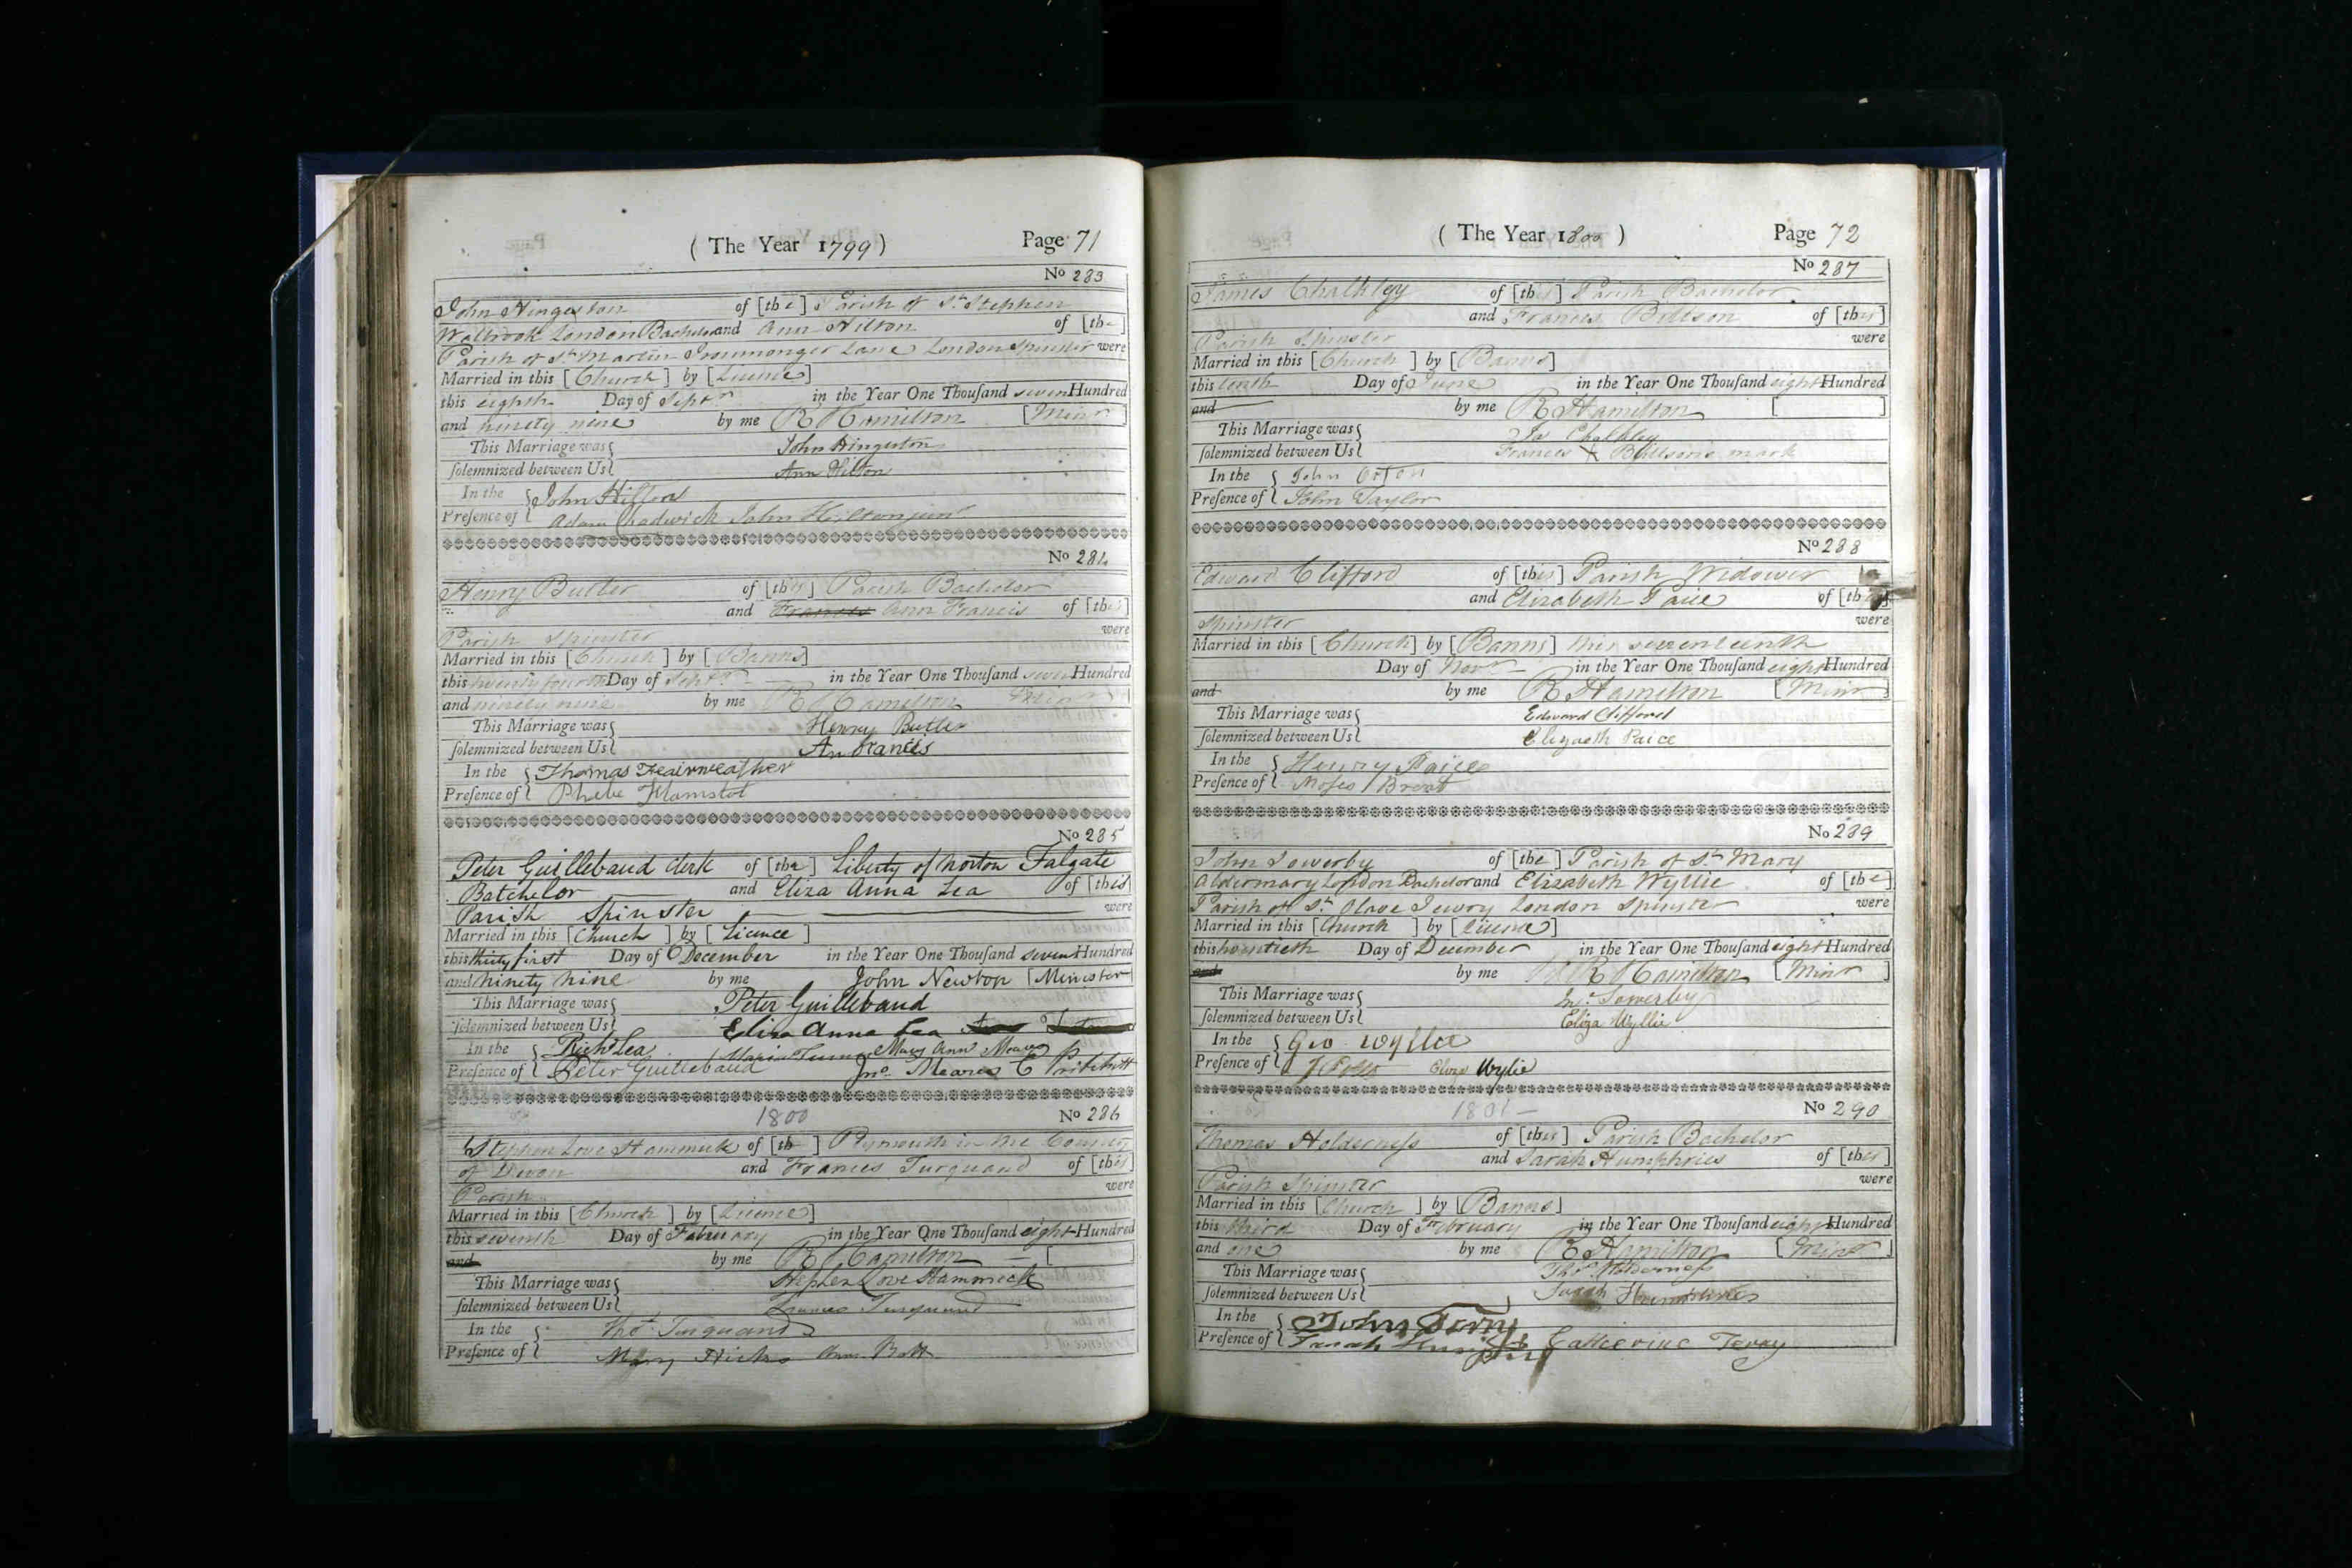 ( The Year 1799 ) Page 71
No 283
John Hingeston of [the] Parish of St Stephen
Walbrook London Bachelor and Ann Hilton of [the]
Parish of St Martin Ironmonger Lane London Spinster were
Married in this [Church] by [Licence]
this eighth Day of Septr in the Year One Thousand seven Hundred
and ninety nine by me R Hamilton [Minr]
This Marriage was John Hingeston
solemnized between Us Ann Hilton
In the John Hilton
Presence of Adam Chadwick John Hilton junr
No 284
Henry Butler of [this] Parish Bachelor
and Frances Ann Francis of [this]
Parish Spinster were
Married in this [Church] by [Banns]
this twenty fourth Day of Septr in the Year One Thousand seven Hundred
and ninety nine by me R Hamilton Minr
This Marriage was Henry Butler
solemnized between Us An Francis
In the Thomas Feairweather
Presence of Phebe Hamstot
No 285
Peter Guillebaud Clerk of [the] Liberty of Norton Falgate
Batchelor and Eliza Anna Lea of [this]
Parish Spinster were
Married in this [Church] by [Licence]
this thirty first Day of December in the Year One Thousand seven Hundred
and ninety nine by me John Newton [Minister
This Marriage was Peter Guillebaud
solemnized between Us Eliza Anna Lea
In the Richd Lea Maria Mary Ann Meares
Presence of Peter Guillebaud Jno. Meares C Pritchett
1800 No 286
Stephen Love Hammick of [th ] Plymouth in the County
of Devon and Frances Turquand of [this]
Parish were
Married in this [Church] by [Licence]
this seventh Day of February in the Year One Thousand eight Hundred
and by me R Hamilton [
This Marriage was Stephen Love Hammick
solemnized between Us Frances Turquand
In the Thos Turquand
Presence of Mary Hicks Ann Bott
( The Year 1800 ) Page 72
No 287
James Chalkley of [this] Parish Bachelor
and Frances Billson of [this]
Parish Spinster were
Married in this [Church] by [Banns]
this tenth Day of June in the Year One Thousand eight Hundred
and by me R Hamilton [ ]
This Marriage was Ja Chalkley
solemnized between Us Frances X Billson's mark
In the John Orton
Presence of John Taylor
No 288
Edward Clifford of [this] Parish Widower
and Elizabeth Paice of [this]
Spinster were
Married in this [Church] by [Banns] this seventeenth
Day of Novr in the Year One Thousand eight Hundred
and by me R Hamilton [Minr]
This Marriage was Edward Clifford
solemnized between Us Elizaeth Paice
In the Henry Paice
Presence of Moses Brent
No 289
John Sowerby of [the] Parish of St Mary
Aldermary London Bachelor and Elizabeth Wyllie of [the]
Parish of St Olave Jewry London Spinster were
Married in this [Church] by [Licence]
this twentieth Day of December in the Year One Thousand eight Hundred
and by me R Hamilton [Minr]
This Marriage was Jno. Sowerby
solemnized between Us Eliza Wyllie
In the Geo Wyllie
Presence of Wylie
1801 No 290
Thomas Holderness of [this] Parish Bachelor
and Sarah Humphries of [this]
Parish Spinster were
Married in this [Church] by [Banns]
this third Day of February in the Year One Thousand eight Hundred
and one by me R Hamilton [Minr]
This Marriage was Thos Holderness
solemnized between Us Sarah Humphries
In the John Terry
Presence of Sarah Catherine Teray